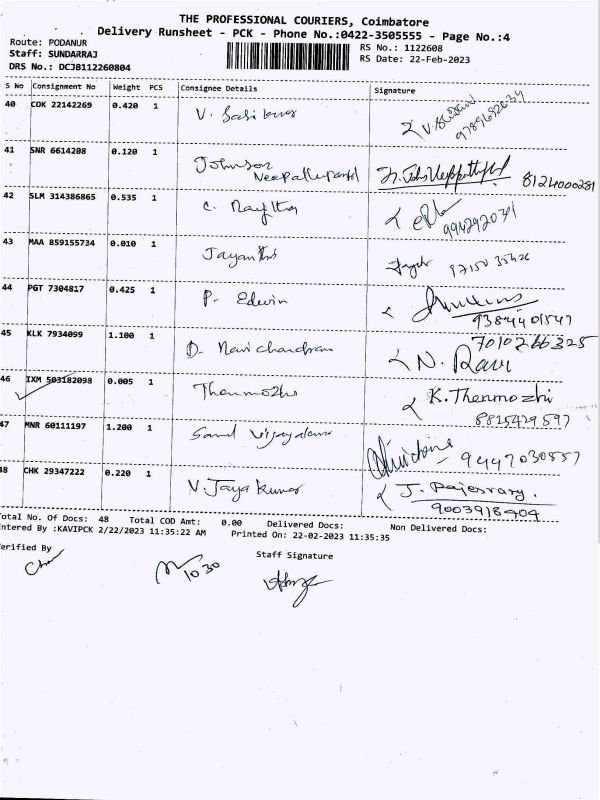 THE PROFESSIONAL COURIERS, Coimbatore
Delivery Runsheet - PCK - Phone No.:0422-3505555 - Page No.:4
Route: PODANUR
Staff: SUNDARRAJ
DRS No.: DCJB112260804
RS No.: 1122608
RS Date: 22-Feb-2023
S No Consignment No Weight PCS Consignee Details Signature
40 COK 22142269 0.420 1 V.
41 SNR 6614208 0.120 1 Johnson
8124000281
42 SLM 314386865 0.535 1 C.
43 MAA 859155734 0.010 1
44 PGT 7304817 0.425 1 P. Edwin
9384401547
45 KLK 7934099 1.100 1 D. Navichandran
7010266325
N. Ravi
46 IXM 503182098 0.005 1 Thenmozhi
K. Thenmozhi
8825429597
47 MNR 60111197 1.200 1
9447030557
48 CHK 29347222 0.220 1 V. Jaya Kumar
9003918404
Total No. Of Docs: 48 Total COD Amt: 0.00 Delivered Docs: Non Delivered Docs:
Entered By :KAVIPCK 2/22/2023 11:35:22 AM Printed On: 22-02-2023 11:35:35
Verified By Staff Signature
10 30